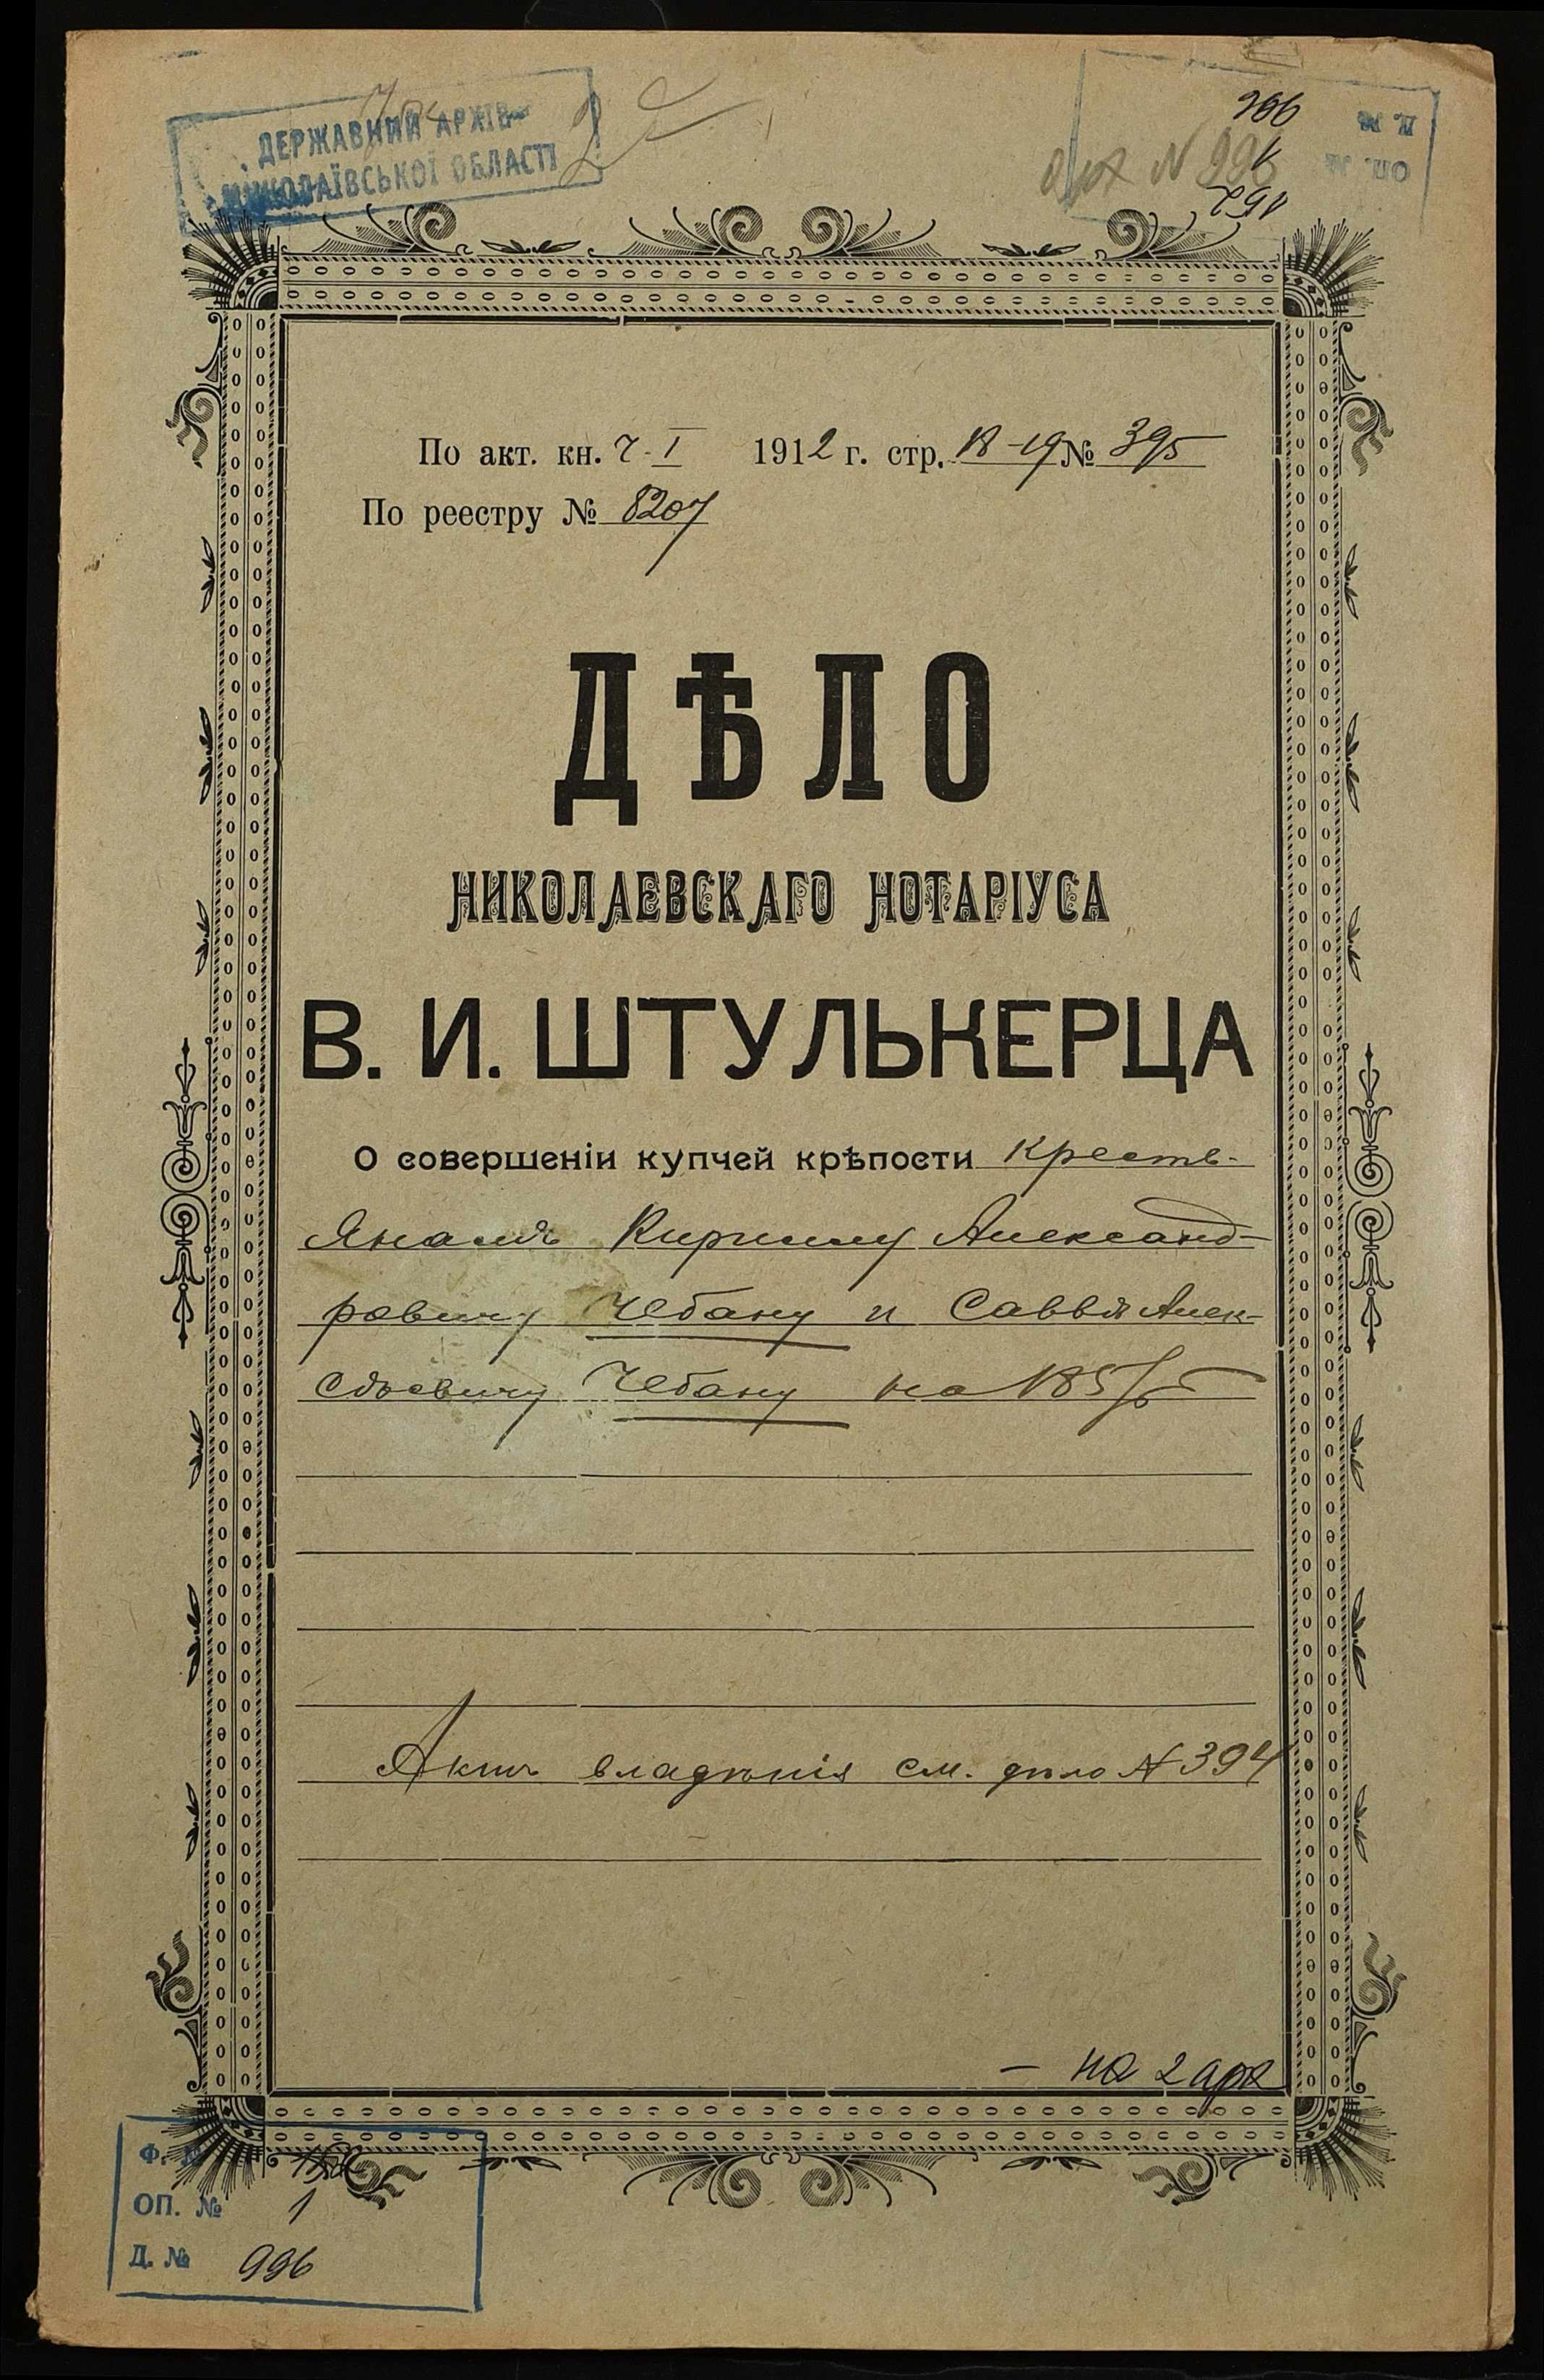 ДЕРЖАВНИЙ АРХІВ
МИКОЛАЇВСЬКОЇ ОБЛАСТІ
996
1
152
Д. №
ОП. №
N 996
По акт. кн. ч. I 1912 г. стр. 18-19 № 395
По реестру № 8207
ДѢЛО
НИКОЛАЕВСКАГО НОТАРІУСА
В. И. ШТУЛЬКЕРЦА
О совершеніи купчей крѣпости Кресть-
янамъ Кириллу Александ-
ровичу Чебану и Саввѣ Алек-
сѣевичу Чебану на 185
Актъ владѣнія см. дѣло № 394
— на 2 арк
Ф. № 152
ОП. № 1
Д. № 996